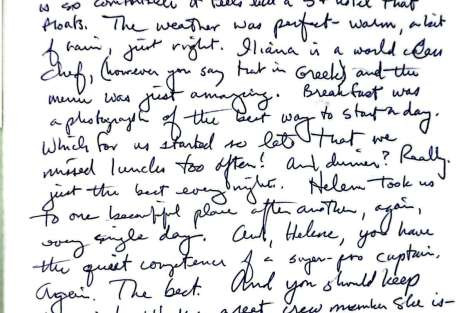 is so comfortable it feels like a 5* hotel that
floats. The weather was perfect - warm, a bit
of rain, just right. Iliana is a world class
chef, (however you say that in Greek) and the
menu was just amazing. Breakfast was
a photograph of the best way to start a day.
Which for us started so late that we
missed lunch too often! And, dinner? Really.
just the best every night. Helene took us
to one beautiful place after another, again,
every single day. And, Helene, you have
the quiet competence of a super-pro captain.
Again. The best. And you should keep
great crew member she is -